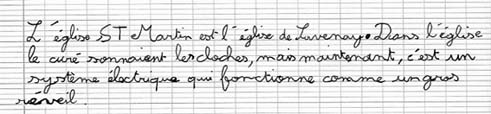 L'église ST Martin est l'église de Lavenay. Dans l'église
le curé sonnaient les cloches, mais maintenant, c'est un
système électrique qui fonctionne comme un gros
réveil.